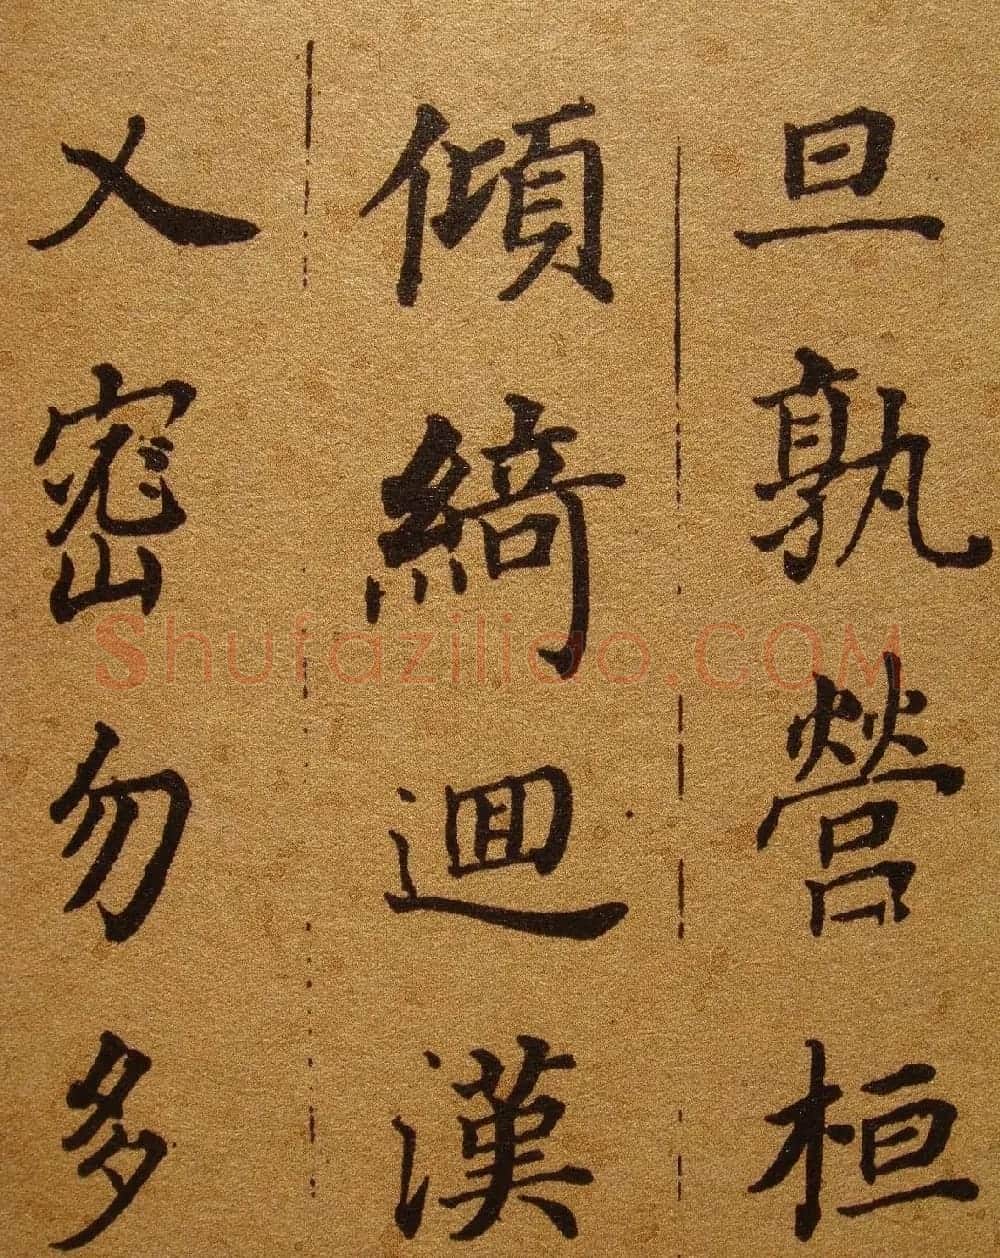 旦孰營桓
傾綺迴漢
乂密勿多
Shufaziliao.COM